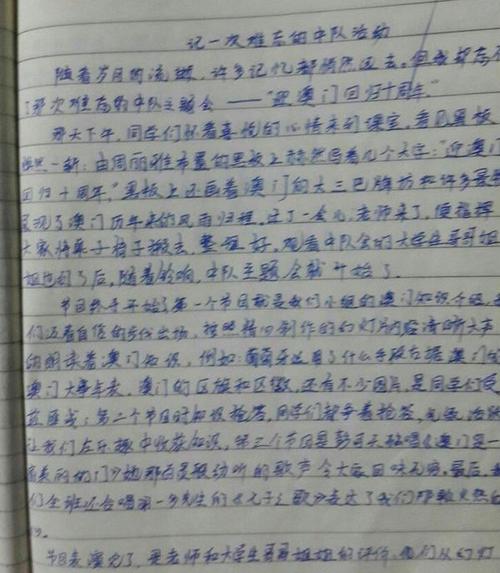 记一次难忘的中队活动
随着岁月的流逝,许多记忆都悄然逝去。但我却忘不
了那次难忘的中队主题会——“迎澳门回归十周年”
那天下午,同学们怀着喜悦的心情来到课室,看见黑板
焕然一新:由周丽雅布置的黑板上赫然写着几个大字:“迎澳门
回归十周年”黑板上还画着澳门的大三巴牌坊和许多
呈现了澳门历年来的风雨归程,过了一会儿,老师来了,便指挥
大家将桌子椅子搬去,整理好。观看中队会的大学生哥哥姐
姐也到了后,随着铃响,中队主题会就开始了。
节目终于开始了第一个节目就是我们小组的澳门知识介绍,
们迈着自信的步伐出场,按照精心制作的幻灯片内容清晰大声
的朗读着澳门知识,例如:葡萄牙运用了什么手段占据澳门
澳门大事年表,澳门的区旗和区徽,还有不少图片,是同学们受
益匪浅;第二个节目时知识抢答,同学们都争着抢答,
让我们在乐趣中收获知识,第三个节目是
的他那百灵般动听的歌声令大家回味无穷,最后,
们全班还合唱闻一多先生的《七子之歌》表达了我们那颗火热的
心。
节目表演完了,要老师和大学生哥哥姐姐的评价,他们从幻灯